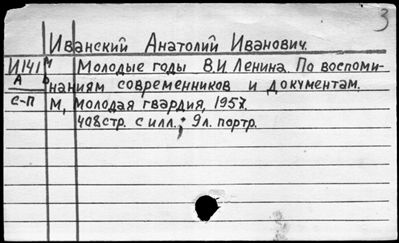 3
Иванский Анатолий Иванович.
И141м Молодые годы В.И. Ленина. По воспоми-
А ь наниям современников и документам.
С-П М, Молодая гвардия, 1957.
408стр. с илл.; 9л. портр.